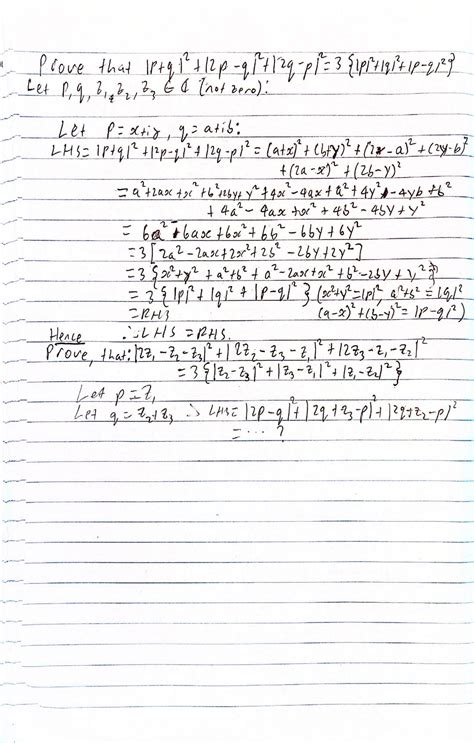 Prove that |p+q|²+|2p-q|²+|2q-p|²=3{|p|²+|q|²+|p-q|²}
Let p,q,z₁,z₂,z₃ ∈ ℂ (not zero):
Let p=x+iy, q=a+ib:
LHS=|p+q|²+|2p-q|²+|2q-p|² = (a+x)²+(b+y)²+(2x-a)²+(2y-b)²
+(2a-x)²+(2b-y)²
=a²+2ax+x²+b²+2by+y²+4x²-4ax+a²+4y²-4yb+b²
+4a²-4ax+x²+4b²-4by+y²
=6a²-6ax+6x²+6b²-6by+6y²
=3[2a²-2ax+2x²+2b²-2by+2y²]
=3{x²+y²+a²+b²+a²-2ax+x²+b²-2by+y²}
=3{|p|²+|q|²+|p-q|²} (x²+y²=|p|², a²+b²=|q|²
=RHS (a-x)²+(b-y)²=|p-q|²)
Hence ∴LHS=RHS.
Prove, that: |2z₁-z₂-z₃|²+|2z₂-z₃-z₁|²+|2z₃-z₁-z₂|²
=3{|z₂-z₃|²+|z₃-z₁|²+|z₁-z₂|²}
Let p=z₁
Let q=z₂+z₃ ∴ LHS=|2p-q|²+|2q+z₃-p|²+|2q+z₂-p|²
=...?